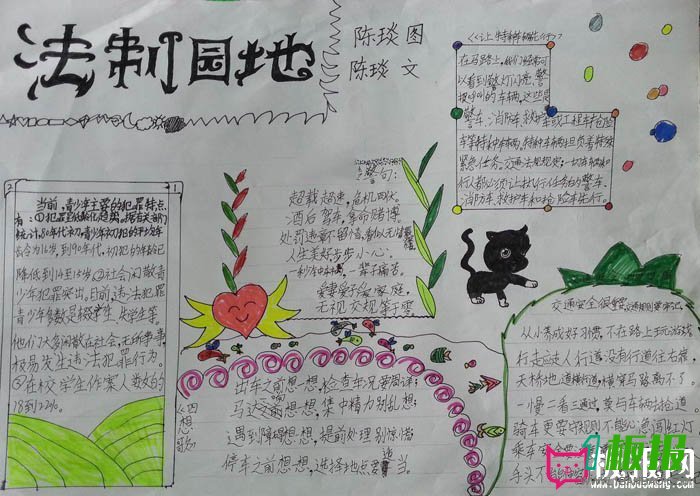 法制园地
陈琰 图
陈琰 文
《让特种车先行》
在马路上，我们经常可
以看到警灯闪亮、警
报呼叫的车辆，这些是
警车、消防车、救护车或工程车抢险
车等特种车辆。特种车辆担负着特殊
紧急任务。交通法规规定：一切车辆和
行人都必须让执行任务的警车、
消防车、救护车和抢险车先行。
2
1
当前，青少年主要的犯罪特点
有：①犯罪低龄化趋势。据有关部门
统计，80年代初，青少年初犯的平均年
龄为16岁，到90年代，初犯的年龄已
降低到14至15岁。②社会闲散青
少年犯罪突出。目前违法犯罪
青少年多数是
失学生等。
他们大多闲散在社会，无所事事
极易发生违法犯罪行为。
③在校学生作案人数大约
18到22%。
警句：
超载超速，危机四伏。
酒后驾车，拿命赌博
处罚违章不留情，看似无情
人生美好步步小心。
一秒
一辈子痛苦。
爱妻爱子爱家庭，
无视交规等于零
《四想歌》
出车之前想一想，检查车况要周详；
马达
想一想，集中精力别乱想；
遇到障碍想一想，提前处理别惊慌
停车之前想一想，选择地段要适当。
交通安全很重要，交通规则要牢记，
从小养成好习惯，不在路上玩游戏
行走应走人行道，没有行道往右靠
天桥地道横行道，横穿马路离不了，
一慢二看三通过，莫与车辆去抢道
骑车更要守规则，不能心急闯红灯
乘车
手头不
1板报
板报网
www.banbaowang.com